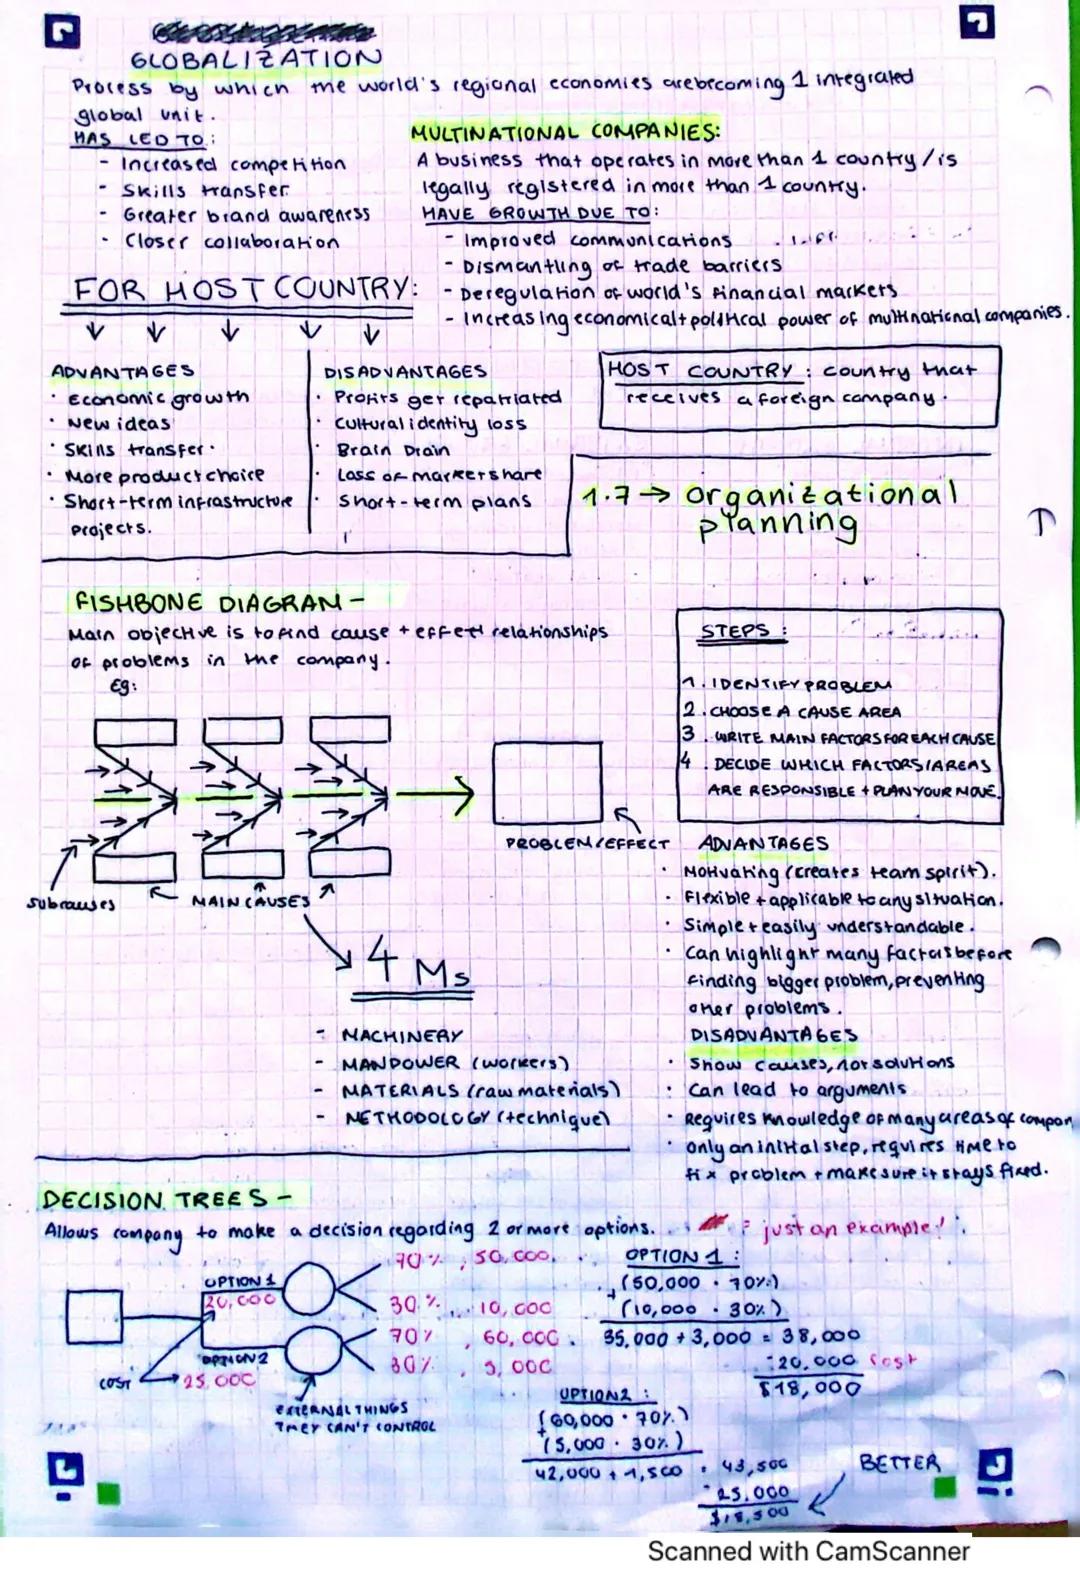 GLOBALIZATION
Process by which the world's regional economies are becoming 1 integrated
global unit.
HAS LED TO:
- Increased competition
- Skills transfer
- Greater brand awareness
- Closer collaboration
MULTINATIONAL COMPANIES:
A business that operates in more than 1 country/is
legally registered in more than 1 country.
HAVE GROWTH DUE TO:
- Improved communications
- Dismantling of trade barriers
- Deregulation of world's financial markets
- Increasing economical + political power of multinational companies.
FOR HOST COUNTRY:
ADVANTAGES
· Economic growth
· New ideas
· Skills transfer.
· More product choice
· Short-term infrastructure
projects.
DISADVANTAGES
· Profits get repatriated
· Cultural identity loss
· Brain Drain
· Loss of market share
· Short-term plans
HOST COUNTRY: country that
receives a foreign company.
1.7 → Organizational
planning
FISHBONE DIAGRAM -
Main objective is to find cause + effect relationships
of problems in the company.
Eg:
PROBLEM/EFFECT
subcauses
MAIN CAUSES
4 Ms
- MACHINERY
- MANPOWER (workers)
- MATERIALS (raw materials)
- METHODOLOGY (technique)
STEPS:
1. IDENTIFY PROBLEM
2. CHOOSE A CAUSE AREA
3. WRITE MAIN FACTORS FOR EACH CAUSE
4. DECIDE WHICH FACTORS/AREAS
ARE RESPONSIBLE + PLAN YOUR MOVE.
ADVANTAGES
· Motivating (creates team spirit).
· Flexible + applicable to any situation.
· Simple + easily understandable.
· Can highlight many factors before
finding bigger problem, preventing
other problems.
DISADVANTAGES
· Show causes, not solutions
· Can lead to arguments
· Requires knowledge of many areas of compan
· Only an initial step, requires time to
fix problem + make sure it stays fixed.
DECISION TREES -
Allows company to make a decision regarding 2 or more options.
= just an example!
OPTION 1
20,000
70%, 50,000.
30%, 10,000
70%, 60,000.
30%, 5,000
OPTION 2
25,000
COST
EXTERNAL THINGS
THEY CAN'T CONTROL
OPTION 1:
(50,000 · 70%)
+
(10,000 · 30%)
35,000 + 3,000 = 38,000
-20,000 cost
$18,000
OPTION 2:
(60,000 · 70%)
+
(5,000 · 30%)
42,000 + 1,500 = 43,500
-25,000
$18,500
BETTER
Scanned with CamScanner